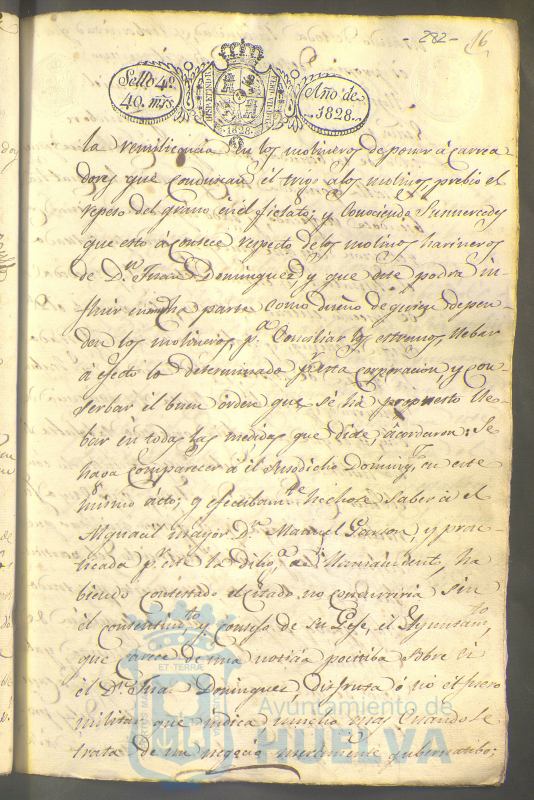 - 282 -
16
Sello 4º
40. mrs.
HISPANIARUM
1828
Año de
1828.
la remilicencia en los molineros de poner a carrea
dores que conduscan el trigo a los molinos, prebio el
repeso del grano en el fielato; y conociendo Sus mercedes
que esto acontece respecto de los molinos harineros
de Dn. Juan Dominguez y que este podra in-
fluir en mucha parte como dueño de quien depen-
den los molineros, pa. conciliar los estremos, llebar
a efecto lo determinado pr. esta corporacion, y con-
serbar el buen orden que se ha propuesto lle-
bar en todas las medidas que dicte, acordaron: Se
haga comparecer a el susodicho Doming. en este
mismo acto; y efectibamte. hechose saber a el
Alguacil mayor Dn. Manuel Garzon, y prac-
ticada pr. este la dilia. de llamamiento, ha
biendo contestado el citado no concurriria sin
el consentimto. y consejo de su Gefe, el Ayuntamto.
que carece de una noticia positiba sobre si
el Dn. Juan Dominguez disfruta ó no el fuero
militar que indica, mucho mas cuando se
trata de un negocio meramente gubernatibo;
ET TERRÆ
Ayuntamiento de
HUELVA